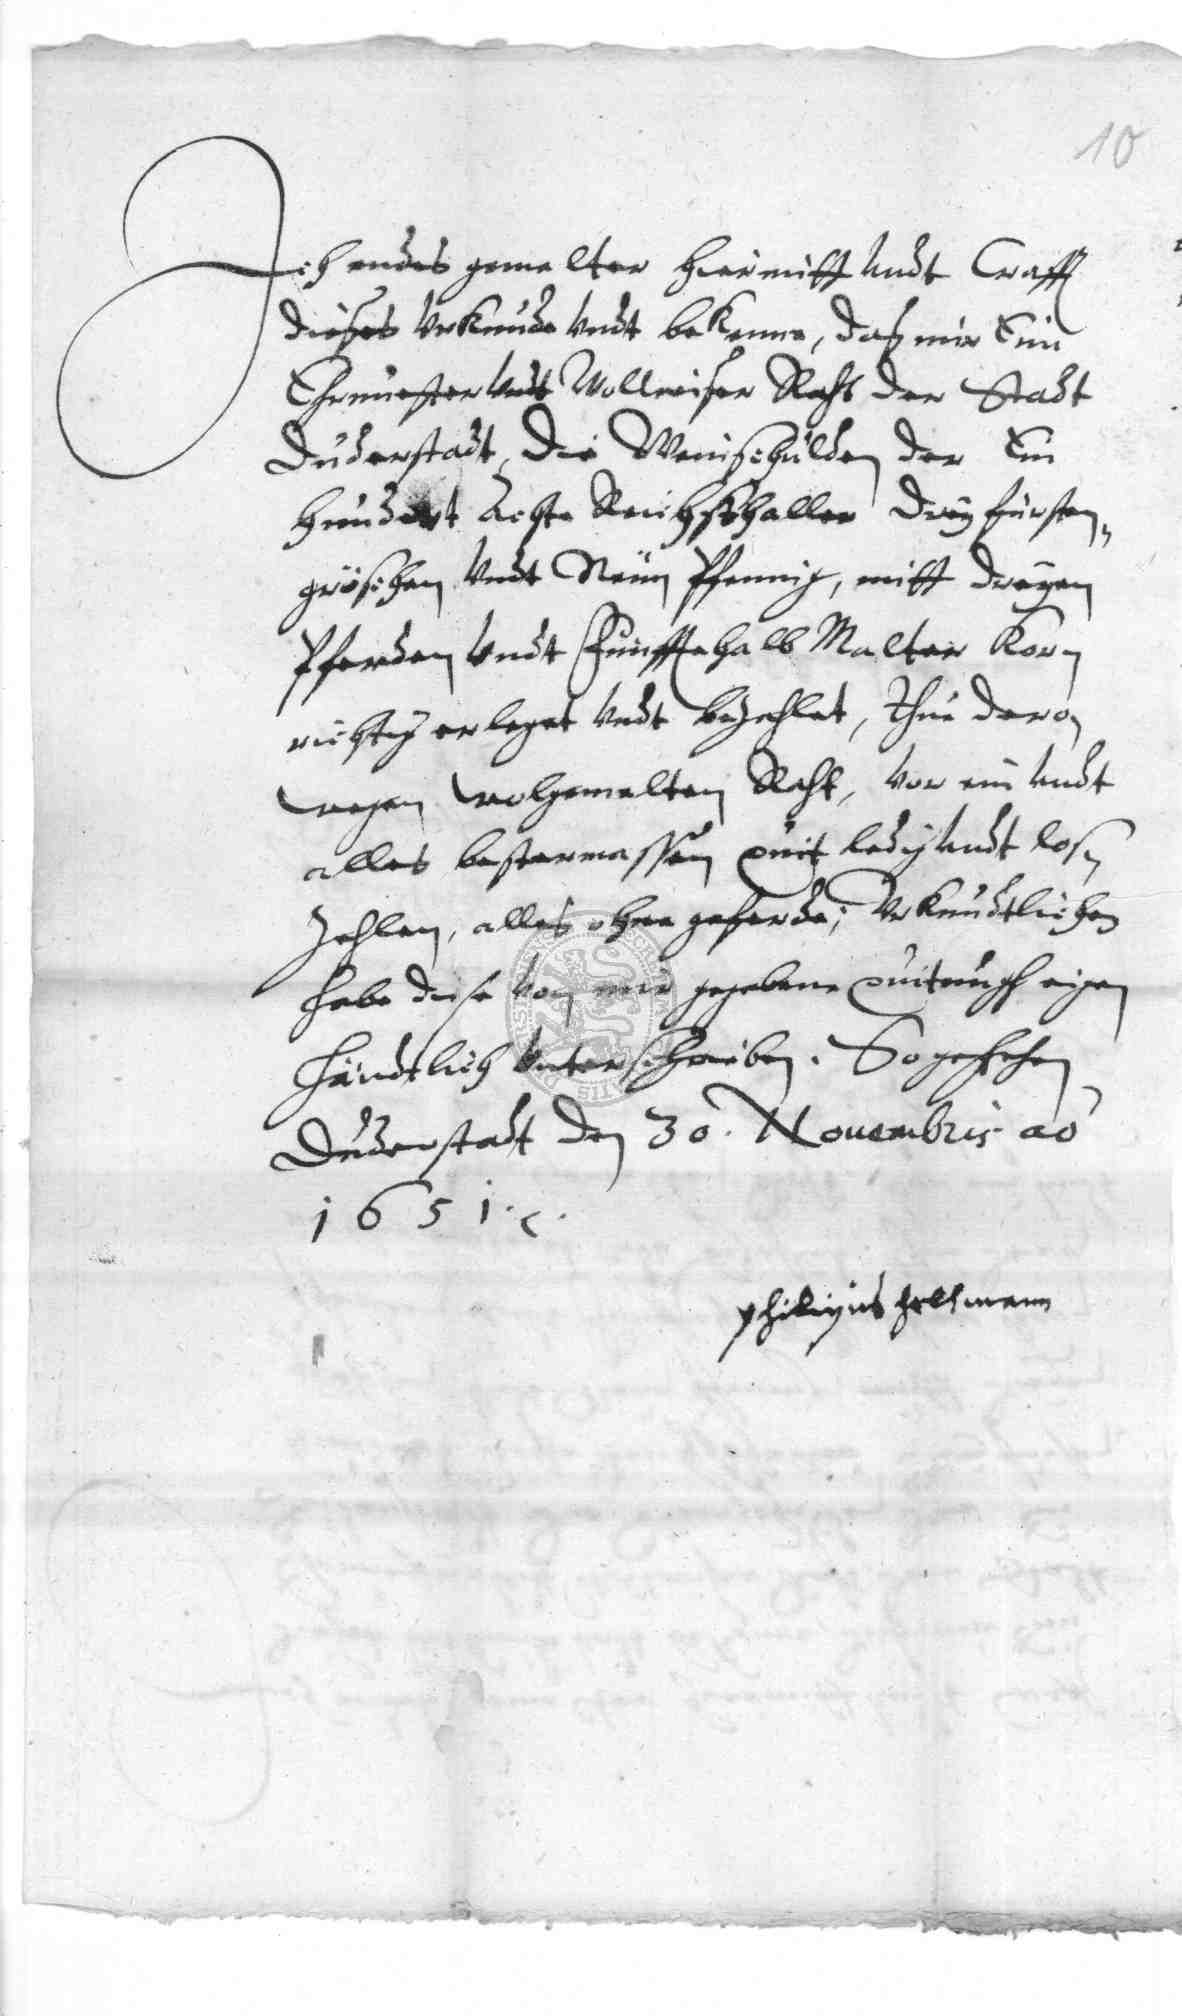 10
Ich endes gemelter hiermitt undt Crafft
dieses Urkunde undt bekenne, daß mir Ein
Ehrnvester undt Wollweiser Raht der Stadt
Duderstadt, die Weinschulden der Ein
hundert Achte Reichsthaller Drey fürsten-
gröschen undt Neun Pfennig, mitt dreyen
Pferden undt Fünfftehalb Malter Korn
richtig erleget undt bezahlet, Thue dero
wegen wolgemelten Raht, vor ein undt
alles bestermassen quit ledig undt loß
Zehlen, alles ohne geferde; Urkundtlichen
habe diese von mir gegebene quitungh eigen
händtlich unterschrieben. So geschehen
Duderstadt den 30. Novembris ao
1651.
Philippus Hellmann